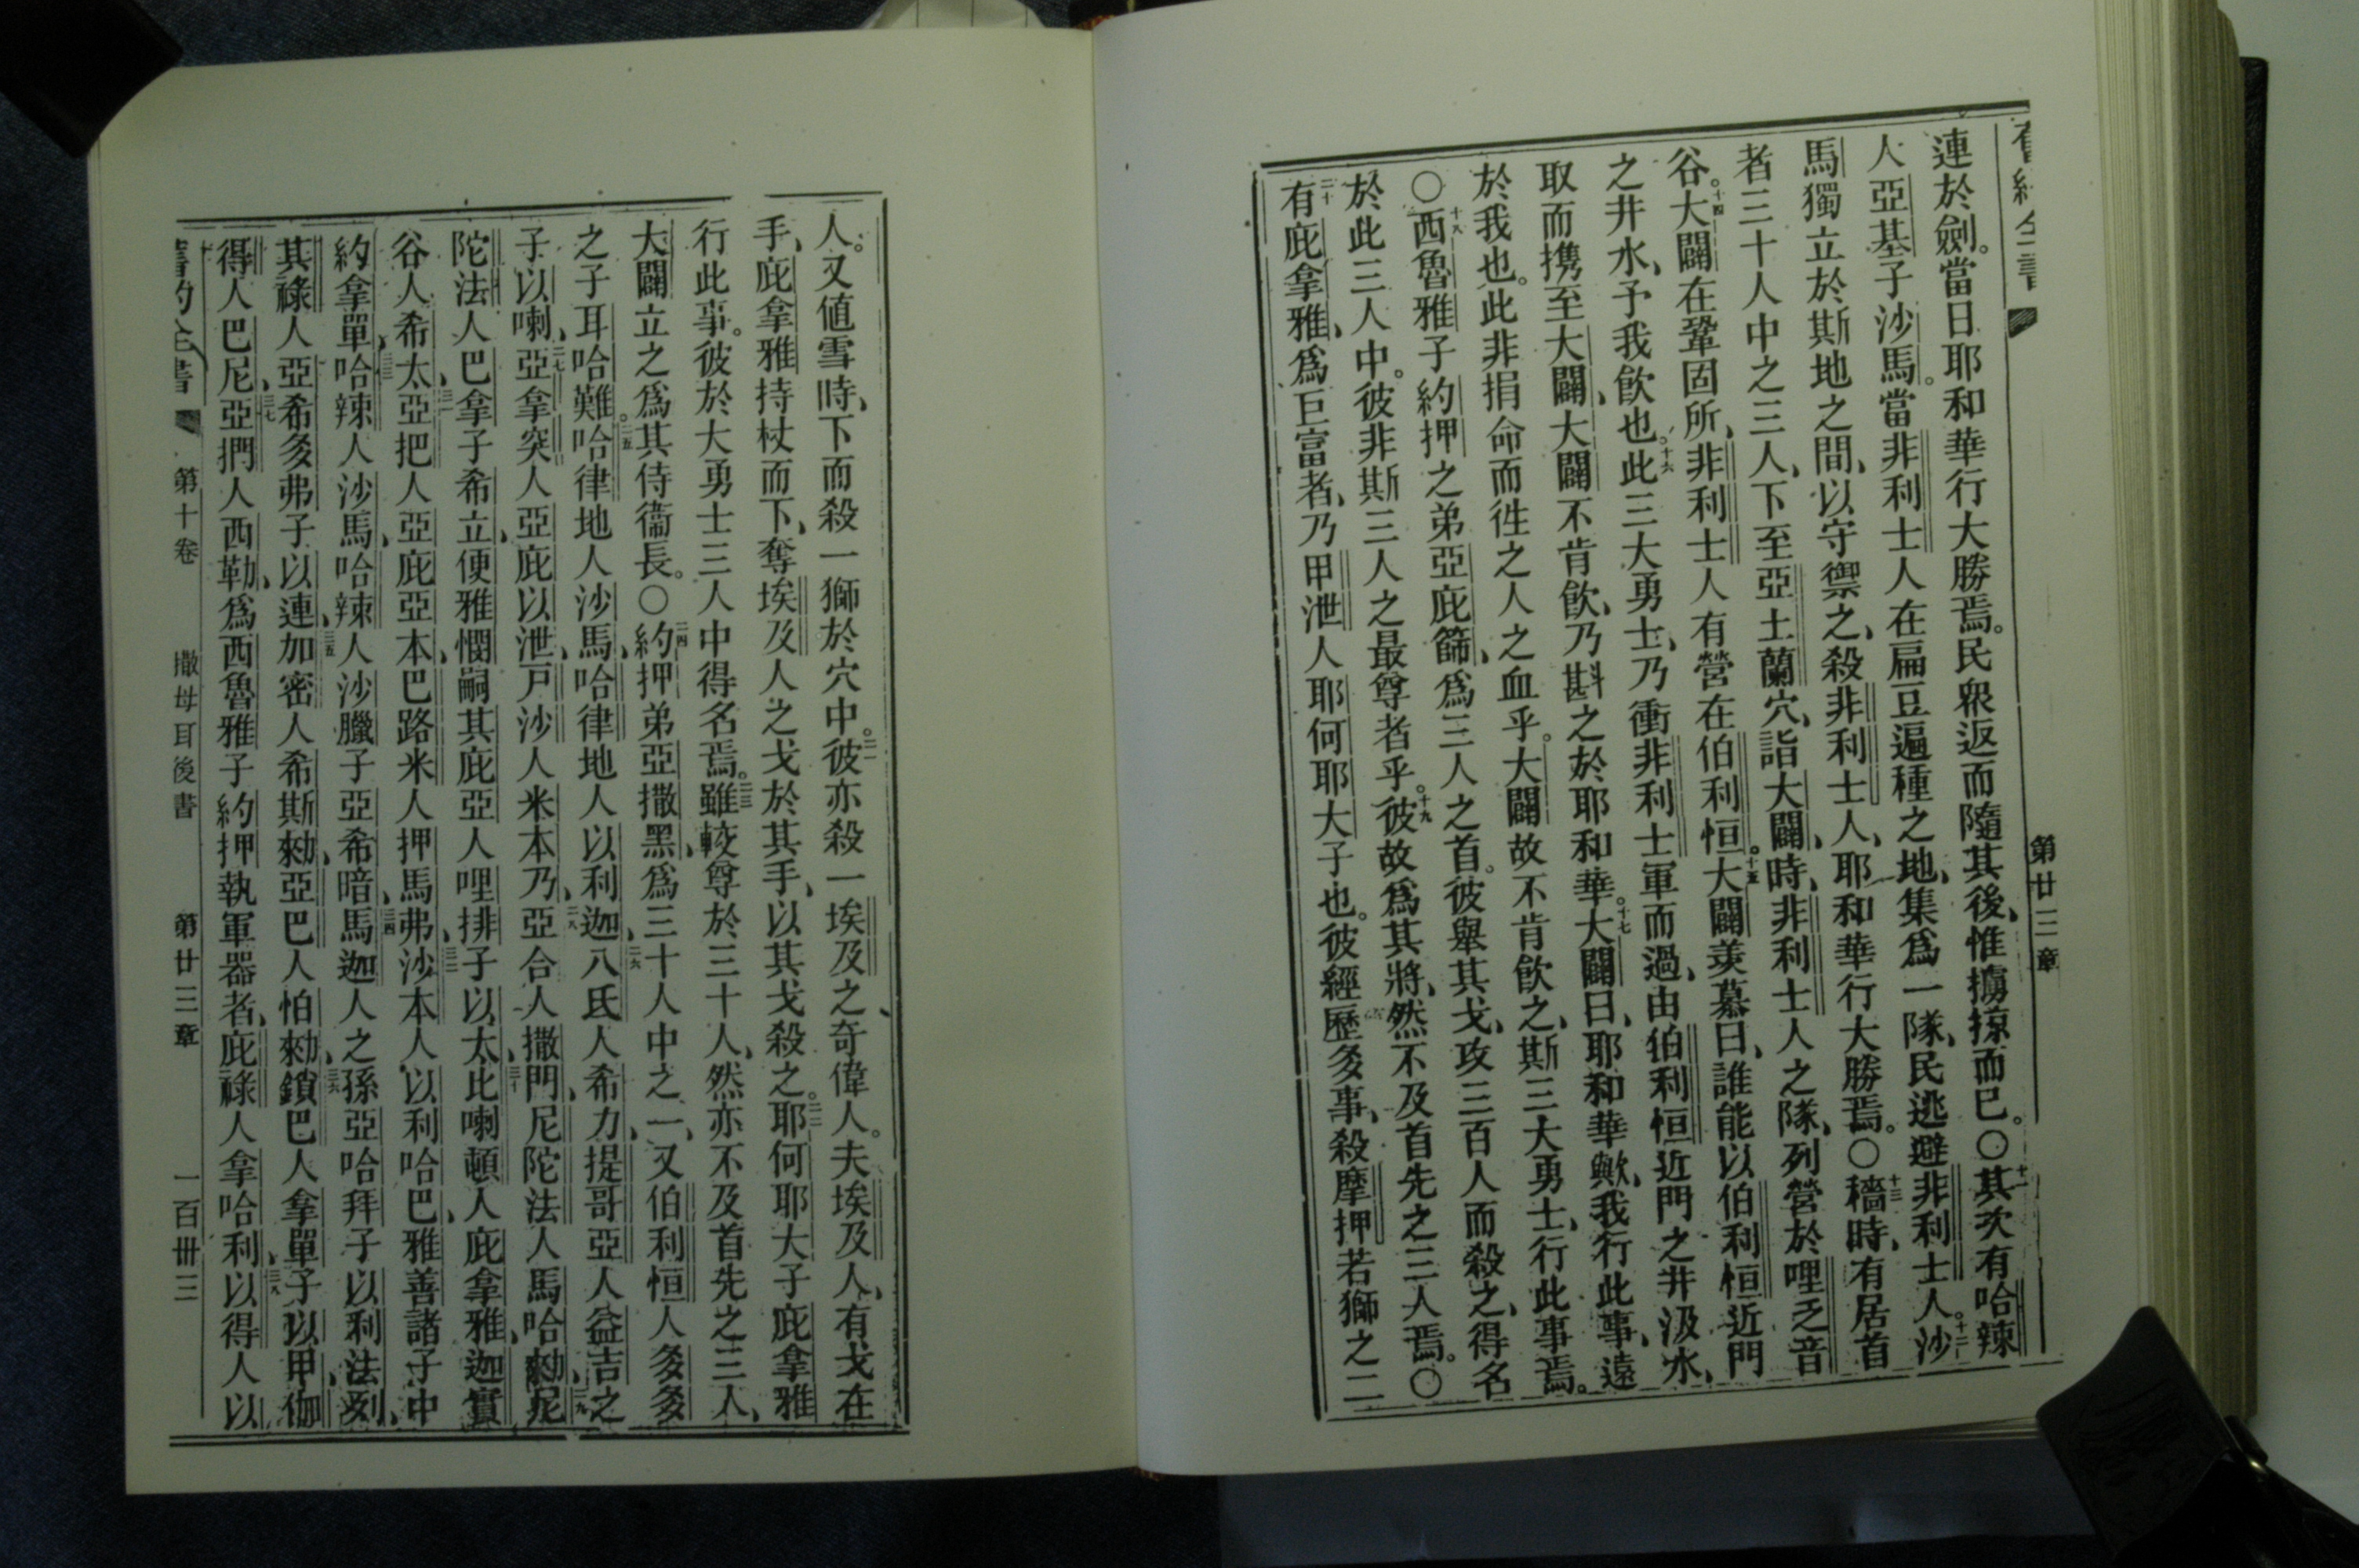 舊約全書 第廿三章
連於劍。當日耶和華行大勝焉。民衆返而隨其後、惟擄掠而已。〇十一其次有哈辣
人亞基子沙馬。當非利士人在扁豆遍種之地、集爲一隊、民逃避非利士人。十二沙
馬獨立於斯地之間、以守禦之、殺非利士人、耶和華行大勝焉。〇十三穡時、有居首
者三十人中之三人、下至亞土蘭穴、詣大闢、時、非利士人之隊、列營於哩乏音
谷。十四大闢在鞏固所、非利士人有營在伯利恒。十五大闢羨慕曰、誰能以伯利恒近門
之井水、予我飲也。十六此三大勇士、乃衝非利士軍而過、由伯利恒近門之井汲水、
取而携至大闢、大闢不肯飲、乃斟之於耶和華。十七大闢曰、耶和華歟、我行此事、遠
於我也。此非捐命而徃之人之血乎。大闢故不肯飲之、斯三大勇士、行此事焉。
〇十八西魯雅子約押之弟亞庇篩、爲三人之首。彼舉其戈、攻三百人而殺之、得名
於此三人中。彼非斯三人之最尊者乎。十九彼故爲其將、然不及首先之三人焉。〇
二十有庇拿雅、爲巨富者、乃甲泄人耶何耶大子也。彼經歷多事、殺摩押若獅之二
人。又値雪時、下而殺一獅於穴中。二一彼亦殺一埃及之奇偉人。夫埃及人、有戈在
手、庇拿雅持杖而下、奪埃及人之戈於其手、以其戈殺之。二二耶何耶大子庇拿雅
行此事。彼於大勇士三人中得名焉。二三雖較尊於三十人、然亦不及首先之三人、
大闢立之爲其侍衞長。〇二四約押弟亞撒黑、爲三十人中之一、又伯利恒人多多
之子耳哈難。二五哈律地人沙馬、哈律地人以利迦、二六八氏人希力、提哥亞人益吉之
子以喇、二七亞拿突人亞庇以泄、戸沙人米本乃、二八亞合人撒門、尼陀法人馬哈勑、二九尼
陀法人巴拿子希立、便雅憫嗣其庇亞人哩排子以太、三十比喇頓人庇拿雅、迦實
谷人希太、三一亞把人亞庇亞本、巴路米人押馬弗、三二沙本人以利哈巴、雅善諸子中
約拿單、三三哈辣人沙馬、哈辣人沙臘子亞希暗、三四馬迦人之孫亞哈拜子以利法列、
其祿人亞希多弗子以連、三五加密人希斯勑、亞巴人怕勑、三六鎖巴人拿單子以甲、伽
得人巴尼、三七亞捫人西勒、爲西魯雅子約押執軍器者、庇祿人拿哈利、三八以得人以
舊約全書 第十卷 撒母耳後書 第廿三章 一百卌三